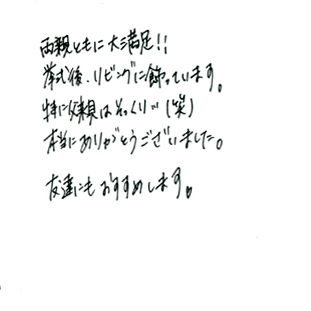 両親ともに大満足!!
挙式後、リビングに飾っています。
特に父親はそっくり…(笑)
本当にありがとうございました。
友達にもおすすめします。